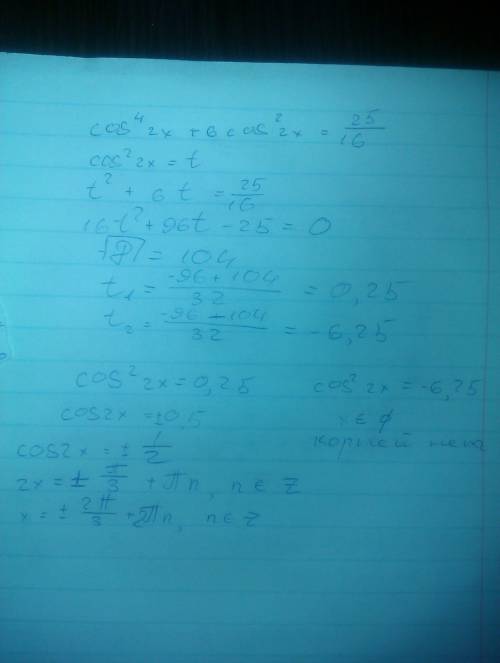 cos⁴ 2x + 6 cos² 2x = 25/16
cos² 2x = t
t² + 6t = 25/16
16t² + 96t - 25 = 0
√D = 104
t₁ = (-96 + 104)/32 = 0,25
t₂ = (-96 - 104)/32 = -6,25
cos² 2x = 0,25
cos² 2x = -6,25
cos2x = ±0,5
x ∈ ∅
cos2x = ± 1/2
корней нет
2x = ± π/3 + πn, n ∈ Z
x = ± 2π/3 + 2πn, n ∈ Z